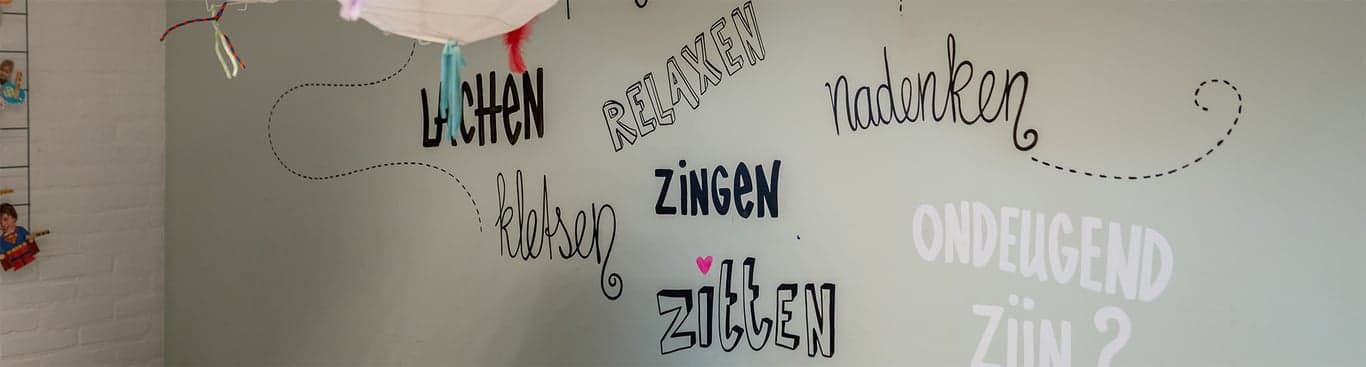 LACHEN
RELAXEN
nadenken
kletsen
ZiNGEN
zitten
ONDEUGEND
ZijN ?